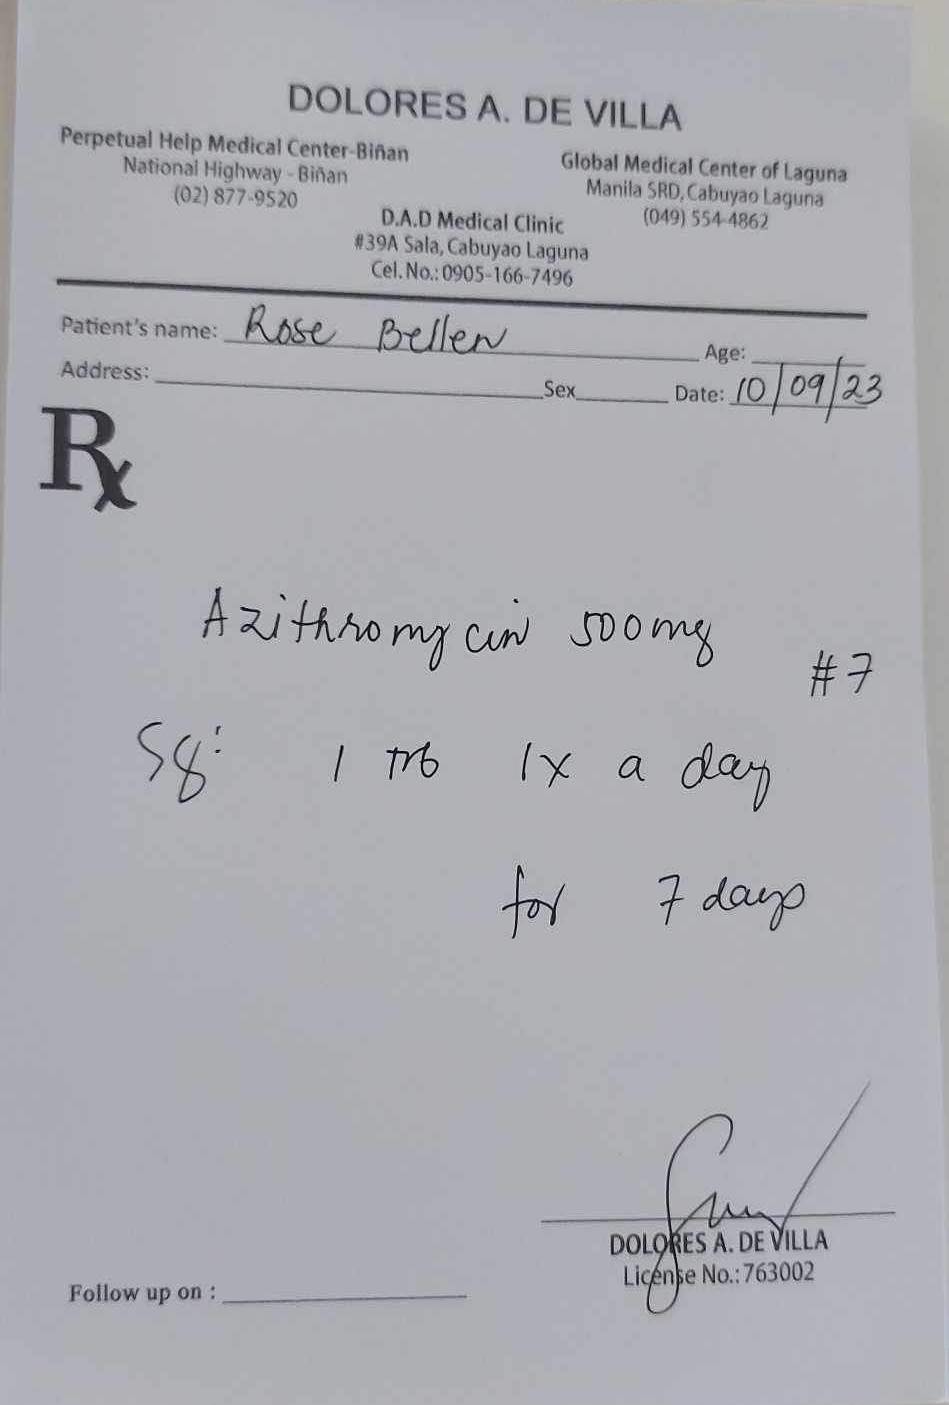 DOLORES A. DE VILLA
Perpetual Help Medical Center-Biñan
National Highway - Biñan
(02) 877-9520
Global Medical Center of Laguna
Manila SRD, Cabuyao Laguna
(049) 554-4862
D.A.D Medical Clinic
#39A Sala, Cabuyao Laguna
Cel. No.: 0905-166-7496
Patient's name: Rose Bellen Age:
Address: Sex Date: 10/09/23
Rx
Azithromycin 500mg
#7
Sg: 1 tab 1x a day
for 7 days
DOLORES A. DE VILLA
License No.: 763002
Follow up on :